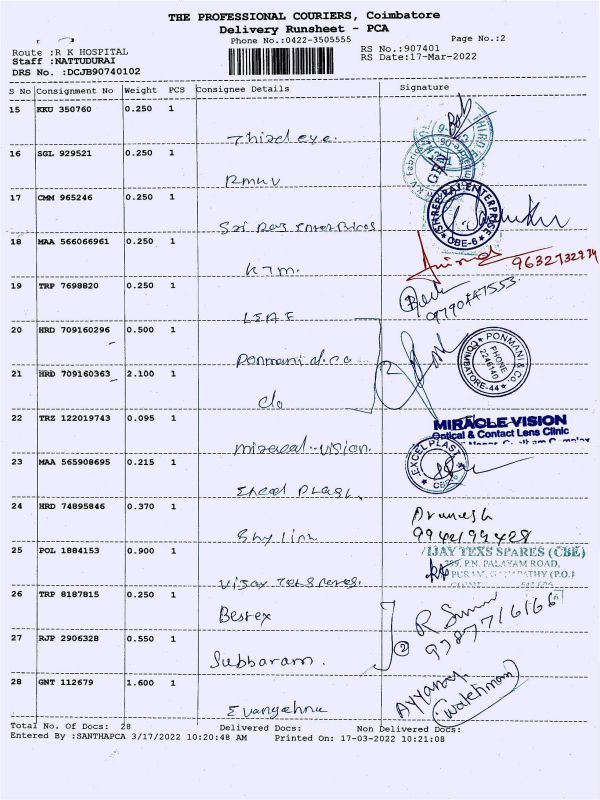 THE PROFESSIONAL COURIERS, Coimbatore
Delivery Runsheet - PCA
Phone No.:0422-3505555
Page No.:2
Route :R K HOSPITAL
RS No.:907401
Staff :NATTUDURAI
RS Date:17-Mar-2022
DRS No. :DCJB90740102
S No Consignment No Weight PCS Consignee Details Signature
15 KKU 350760 0.250 1
Third eye.
16 SGL 929521 0.250 1
RMKV
17 CMM 965246 0.250 1
Sri Raj Enterprises
SHREE RAJ ENTERPRISE
CBE-6
18 MAA 566066961 0.250 1
KTM.
9632732974
19 TRP 7698820 0.250 1
9790447553
20 HRD 709160296 0.500 1
Ponmani & co
PONMANI & CO.
PHONE
2246140
COIMBATORE-44
21 HRD 709160363 2.100 1
do
22 TRZ 122019743 0.095 1
miracal vision.
MIRACLE VISION
Optical & Contact Lens Clinic
23 MAA 565908695 0.215 1
Excel Plast.
EXCEL PLAST
24 HRD 74895846 0.370 1
Sky link
9942199428
25 POL 1884153 0.900 1
Vijay Tex Spares.
VIJAY TEXS SPARES (CBE)
299, P.N. PALAYAM ROAD,
26 TRP 8187815 0.250 1
Bestex
9787716166
27 RJP 2906328 0.550 1
Subbaram.
28 GNT 112679 1.600 1
Ayyanar
(watchman)
Total No. Of Docs: 28 Delivered Docs: Non Delivered Docs:
Entered By :SANTHAPCA 3/17/2022 10:20:48 AM Printed On: 17-03-2022 10:21:08